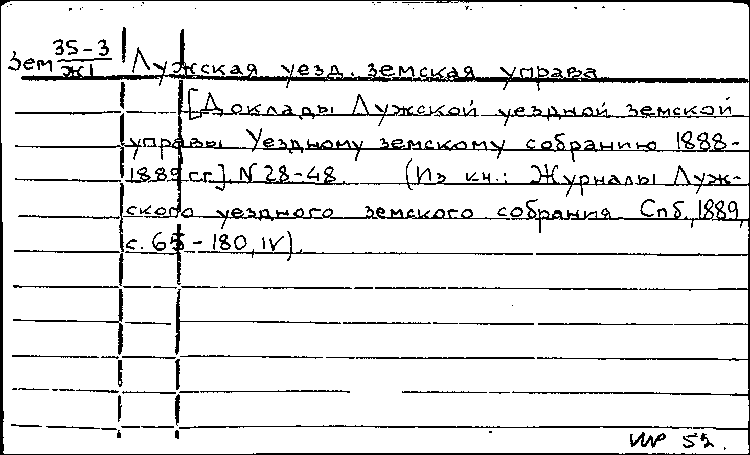 Зем 35-3 Лужская уезд. земская управа
Ж1
[Доклады Лужской уездной земской
управы Уездному земскому собранию 1888-
1889 гг.] N 28-48. (Из кн.: Журналы Луж-
ского уездного земского собрания. Спб., 1889,
с. 65-180, IV).
52.